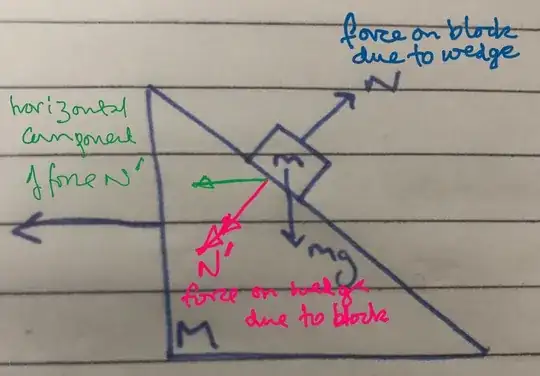 force on block
due to wedge
N
horizontal
component
of force N'
m
mg
N'
force on wedge
due to block
M